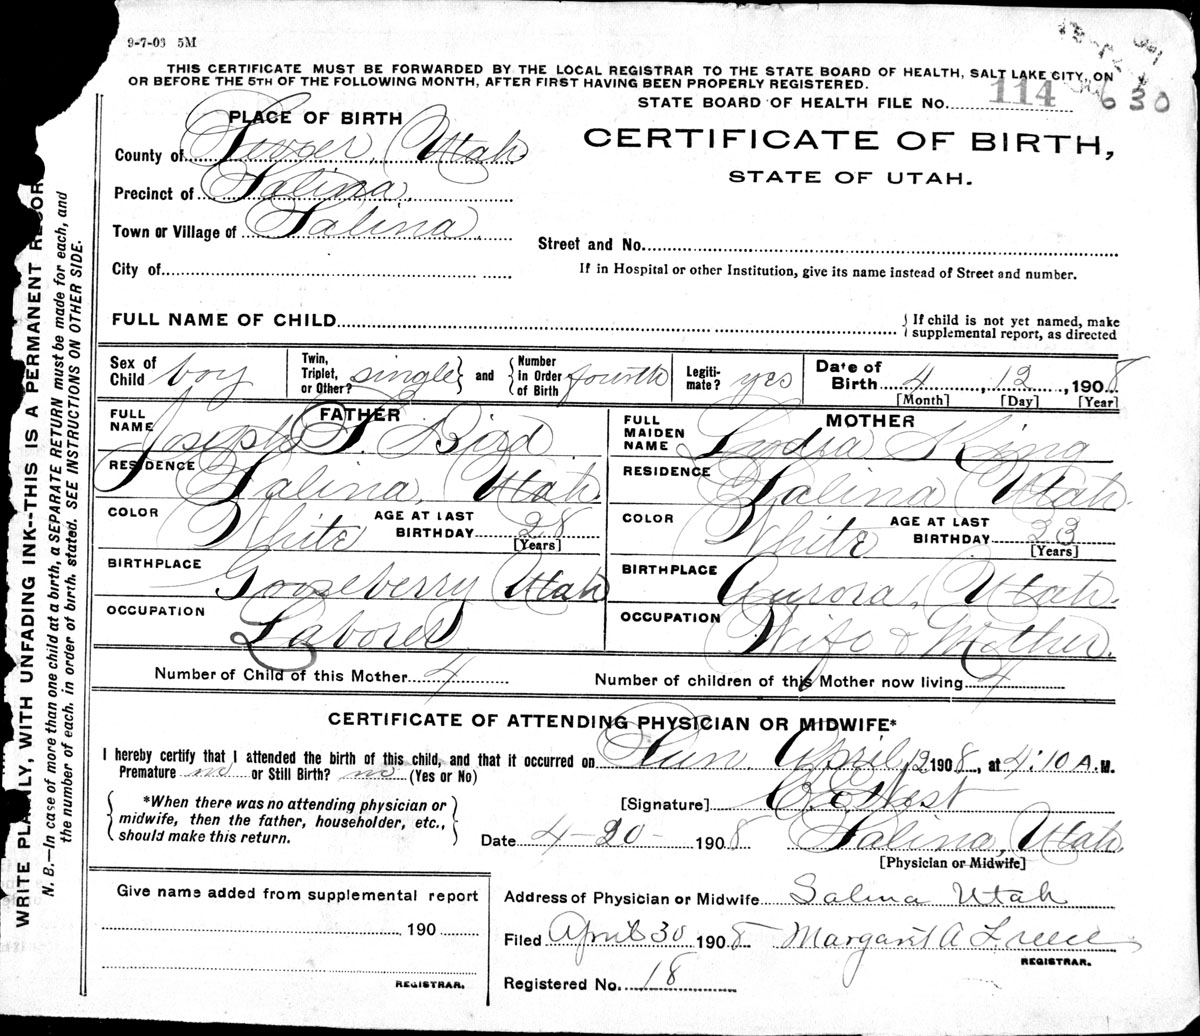 9-7-03 5M
THIS CERTIFICATE MUST BE FORWARDED BY THE LOCAL REGISTRAR TO THE STATE BOARD OF HEALTH, SALT LAKE CITY, ON
OR BEFORE THE 5TH OF THE FOLLOWING MONTH, AFTER FIRST HAVING BEEN PROPERLY REGISTERED.
STATE BOARD OF HEALTH FILE No. 114 630
PLACE OF BIRTH
CERTIFICATE OF BIRTH,
STATE OF UTAH.
County of Sevier, Utah
Precinct of Salina,
Town or Village of Salina,
Street and No.
City of
If in Hospital or other Institution, give its name instead of Street and number.
FULL NAME OF CHILD
If child is not yet named, make
supplemental report, as directed
Sex of Child boy
Twin, Triplet, or Other? single and Number in Order of Birth fourth
Legitimate? yes
Date of Birth 4, 12, 1908
[Month] [Day] [Year]
FATHER
FULL NAME Joseph F. Bird
RESIDENCE Salina, Utah
COLOR White AGE AT LAST BIRTHDAY 28
[Years]
BIRTHPLACE Gooseberry Utah
OCCUPATION Laborer
MOTHER
FULL MAIDEN NAME Lydia King
RESIDENCE Salina Utah
COLOR White AGE AT LAST BIRTHDAY 23
[Years]
BIRTHPLACE Aurora, Utah
OCCUPATION Wife & Mother.
Number of Child of this Mother 4
Number of children of this Mother now living 4
CERTIFICATE OF ATTENDING PHYSICIAN OR MIDWIFE*
I hereby certify that I attended the birth of this child, and that it occurred on Sun April, 12 1908, at 4:10 A. M.
Premature no or Still Birth? no (Yes or No)
*When there was no attending physician or
midwife, then the father, householder, etc.,
should make this return.
[Signature] West
Date 4-20- 1908 Salina, Utah
[Physician or Midwife]
Give name added from supplemental report
190
REGISTRAR.
Address of Physician or Midwife Salina Utah
Filed April 30 1908 Margaret A
REGISTRAR.
Registered No. 18
WRITE PLAINLY, WITH UNFADING INK--THIS IS A PERMANENT RECOR
N. B.—In case of more than one child at a birth, a SEPARATE RETURN must be made for each, and
the number of each, in order of birth, stated. SEE INSTRUCTIONS ON OTHER SIDE.